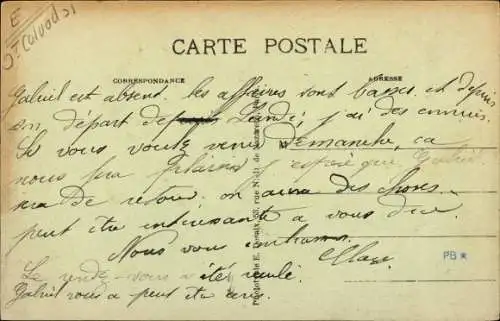 E
St Calvados
CARTE POSTALE
CORRESPONDANCE
ADRESSE
Gabriel est absent. les affaires sont basses et depuis
son départ de Landé, j'ai des ennuis.
Si vous voulez venir Demanche, ca
nous fera plaisir j'espère que Gabriel
sera de retour. on aura des choses
peut etre interessante a vous dire
Nous vous
Le rendez-vous a été
Gabriel vous a peut etre
PB